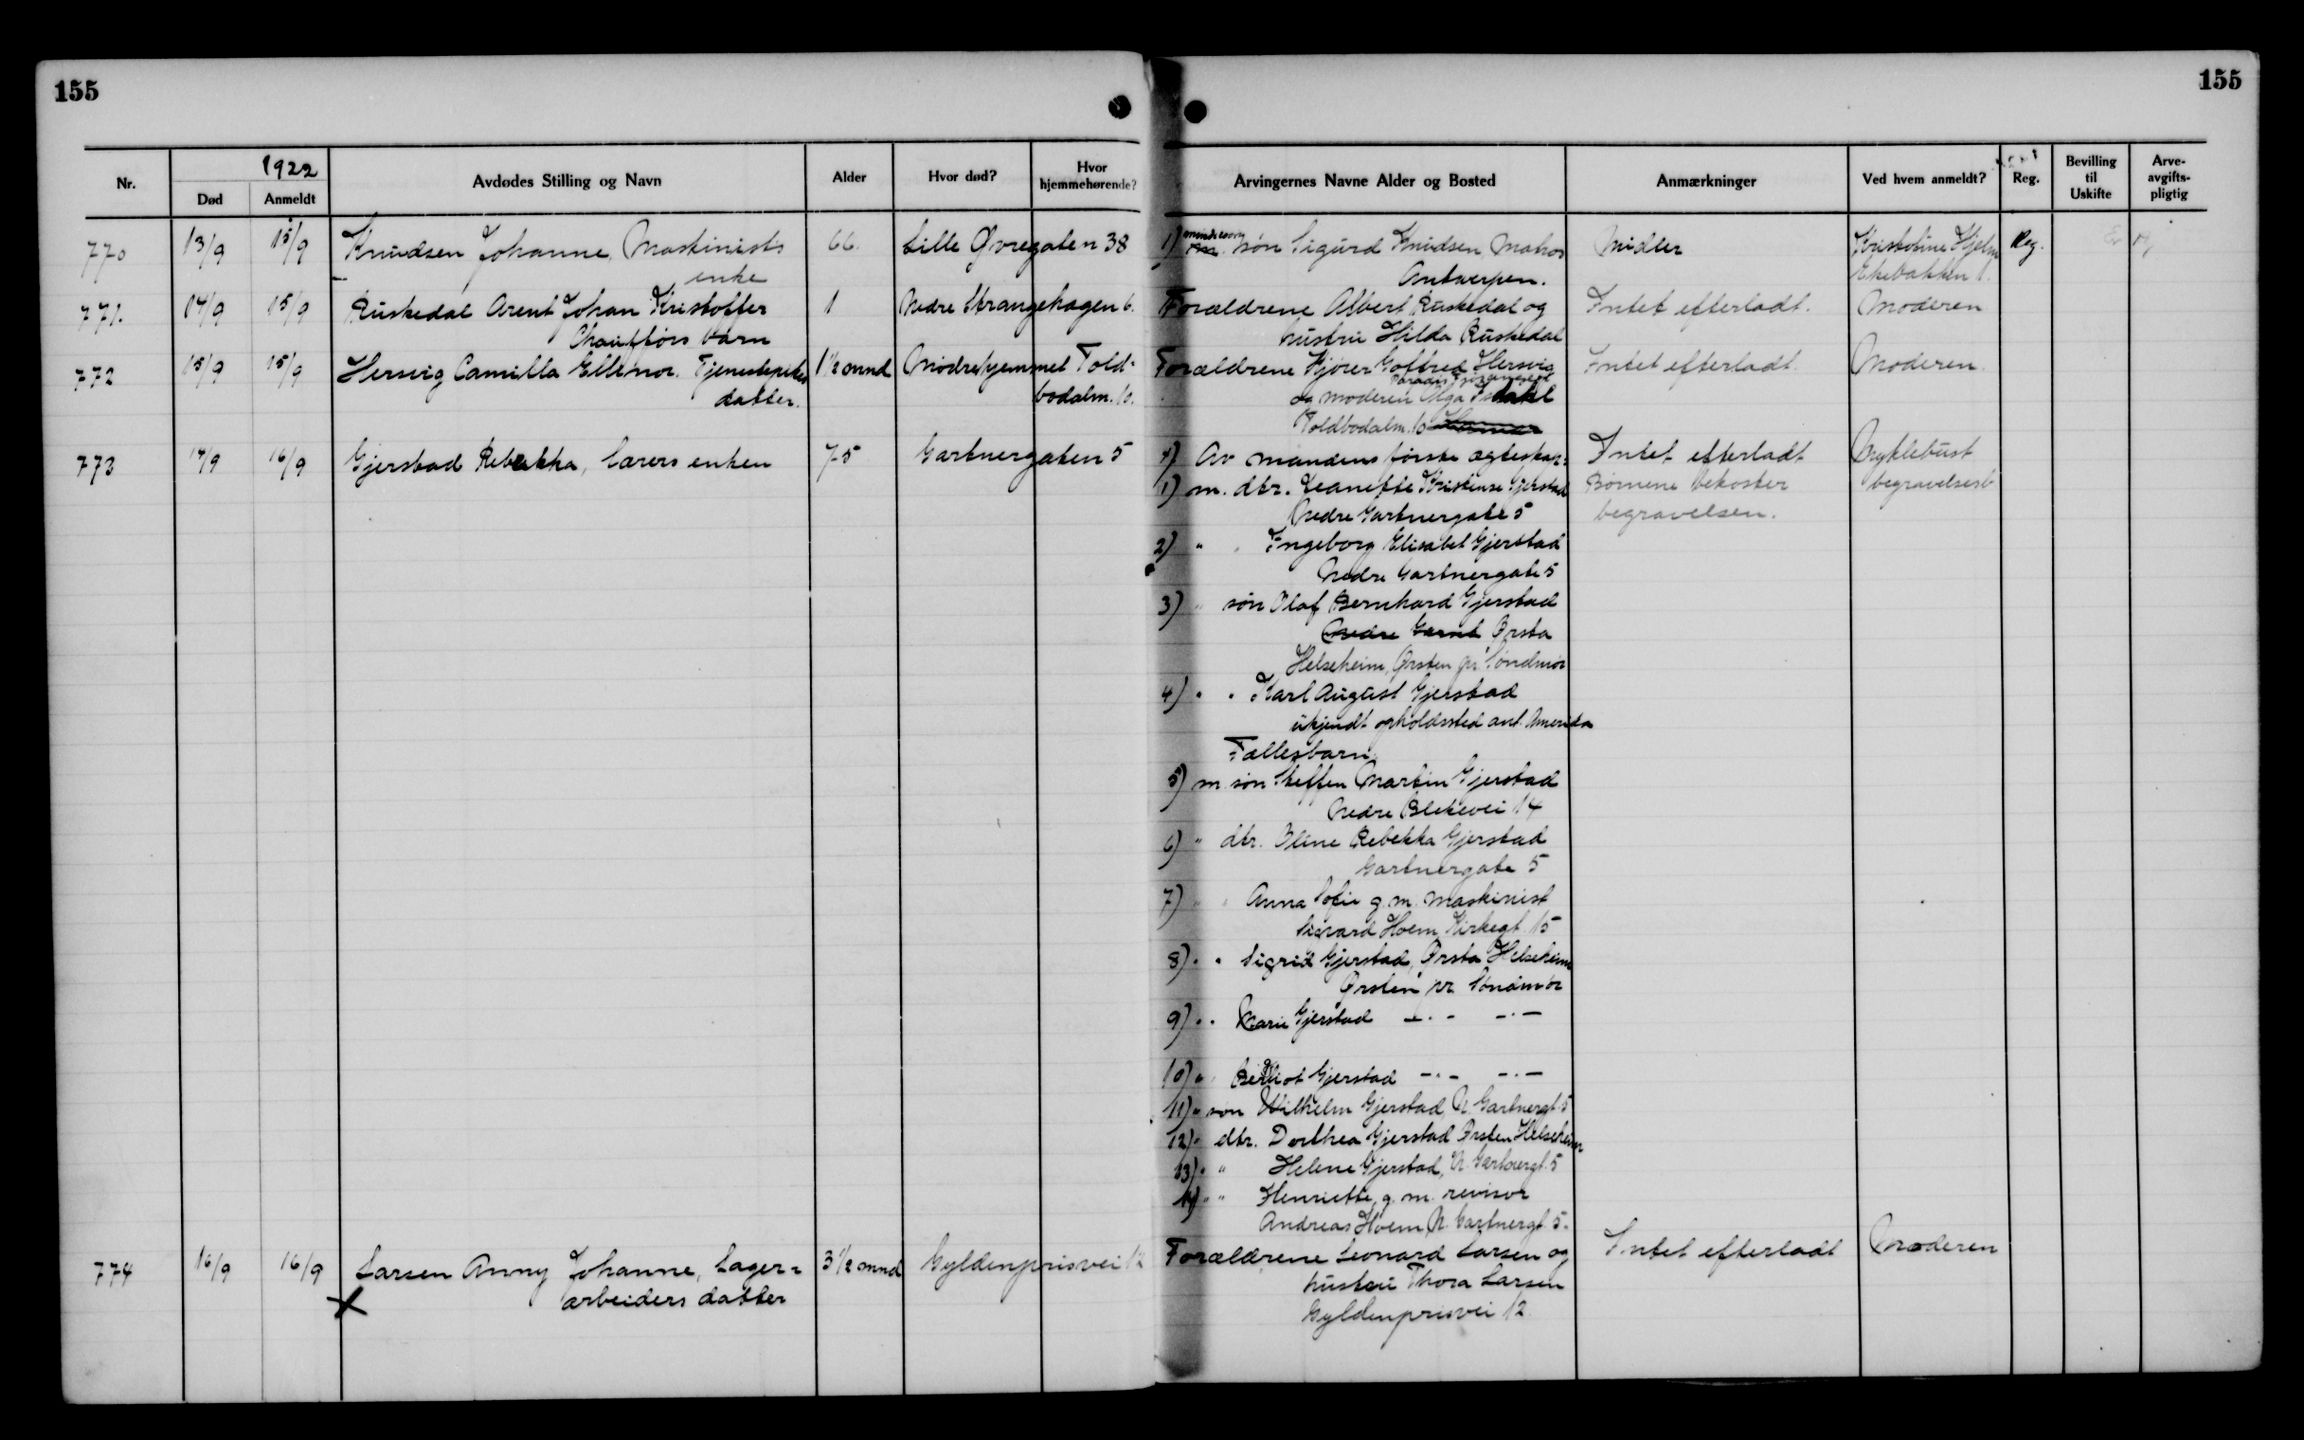 155
155
1922
Nr.
Død
Anmeldt
Avdødes Stilling og Navn
Alder
Hvor død?
Hvor hjemmehørende?
Arvingernes Navne Alder og Bosted
Anmærkninger
Ved hvem anmeldt?
Reg.
Bevilling til Uskifte
Arve-avgifts-pligtig
770 13/9 15/9 Knudsen Johanne, Maskinists 66. Lille Øvregaten 38 1) søn Sigurd Knudsen Matros Midler Kristoline Hjelm Reg.
enke Antwerpen. Ekebakken 1.
771. 14/9 15/9 Ruskedal Arent Johan Kristoffer 1 Nedre Strangehagen 6. Forældrene Albert Ruskedal og Intet efterladt. Moderen
Chaufførs barn hustru Hilda Ruskedal
772 15/9 15/9 Hersvig Camilla Ellenor. Tjenestepikes 1 1/2 mnd Mødrehjemmet Told= Forældrene Kjører Gotfred Hersvig Intet efterladt. Moderen.
datter. bodalm. 10. og moderen Olga Isdahl
Toldbodalm. 10
773 14/9 16/9 Gjerstad Rebekka, lærers enken 75 Gartnergaten 5 Av mandens første ægteskap: Intet efterladt Myklebust
1) m. dtr. Jeanette Kristense Gjerstad Børnene bekoster begravelsesb
Nedre Gartnergate 5 begravelsen.
2) " " Ingeborg Elisabet Gjerstad
Nedre Gartnergate 5
3) " søn Olaf Bernhard Gjerstad
Nedre Ørsta
Helseheim, Ørsten pr. Søndmør
4) " " Karl August Gjerstad
ukjendt opholdssted ant. Amerika
Fællesbarn.
5) m. søn Steffen Martin Gjerstad
Nedre Blekevei 14
6) " dtr. Oline Rebekka Gjerstad
Gartnergate 5
7) " " Anna Sofie g. m. maskinist
Hoem, Kirkegt. 15
8) " " Sigrid Gjerstad, Ørsta Helseheim
Ørsten pr. Søndmør
9) " " Marie Gjerstad —"— —"—
10) " " Gjerstad —"— —"—
11) " søn Wilhelm Gjerstad, N. Gartnergt. 5
12) " dtr. Dorthea Gjerstad Ørsten Helseheim
13) " " Helene Gjerstad, N. Gartnergt. 5
14) " " Henriette, g. m. revisor
Andreas Hoem, N. Gartnergt. 5.
774 16/9 16/9 Larsen Anny Johanne, Lager= 3 1/2 mnd Gyldenprisvei 12 Forældrene Leonard Larsen og Intet efterladt Moderen
arbeiders datter hustru Thora Larsen
Gyldenprisvei 12.